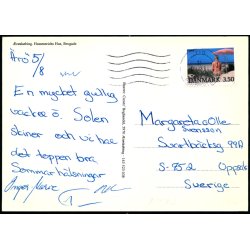 Ærøskøbing. Hammerichs Hus, Brogade
Ärö 5/8
En mycket gullig
vacker ö. Solen
skiner och vi har
det toppen bra
Sommar hälsningar
DANMARK 3.50
Margareta o Olle
Svensson
Svartbäcksg 99D
S-752 Uppsala
Sverige